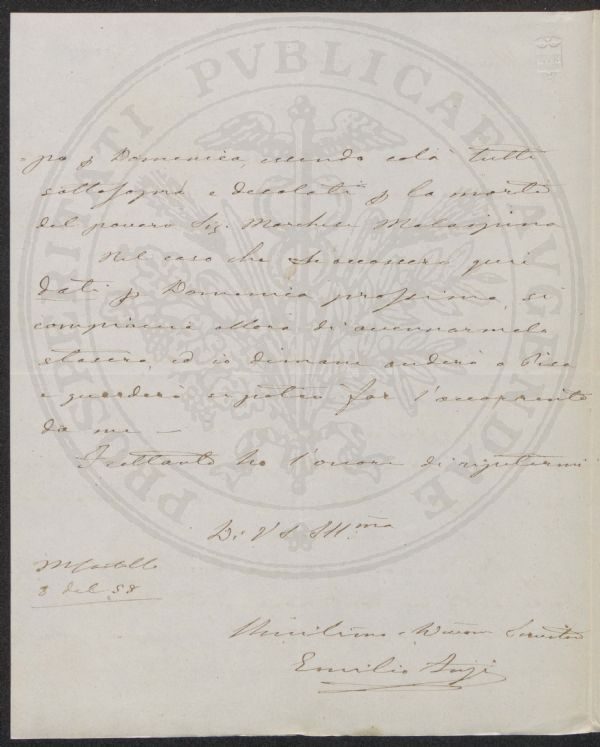 PROSPERITATI PVBLICAE AVGENDAE
po p Domenica, essendo colà tutti
sottosopra e desolati p la morte
del povero Sig. Marchese Malaspina
Nel caso che gli occorsero quei
dati p Domenica prossima, si
compiacerà allora di accennarmelo
stasera, ed io dimani anderò a Pisa
e guarderò se potrò far l'occorrente
da me —
Frattanto ho l'onore di ripetermi
Di V S Ill.ma
3 del 58
Umilissimo Servitore
Emilio